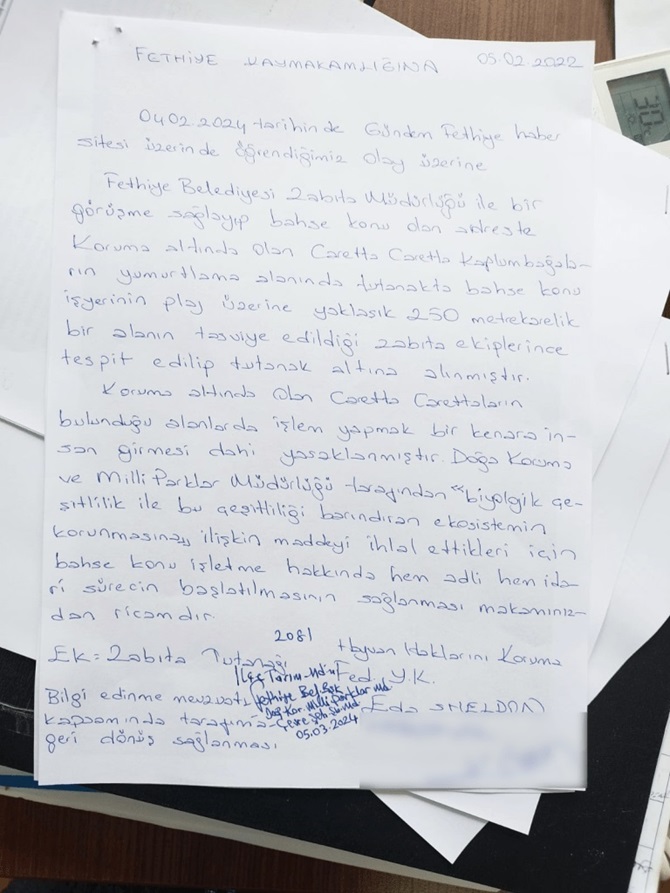 FETHİYE KAYMAKAMLIĞINA 05.02.2022
04.02.2024 tarihinde Gündem Fethiye haber
sitesi üzerinde öğrendiğimiz olay üzerine
Fethiye Belediyesi Zabıta Müdürlüğü ile bir
görüşme sağlayıp bahse konu olan adreste
Koruma altında olan Caretta Caretta Kaplumbağala-
rın yumurtlama alanında tutanakta bahse konu
işyerinin plaj üzerine yaklaşık 250 metrekarelik
bir alanın tasviye edildiği zabıta ekiplerince
tespit edilip tutanak altına alınmıştır.
Koruma altında olan Caretta Carettaların
bulunduğu alanlarda işlem yapmak bir kenara in-
san girmesi dahi yasaklanmıştır. Doğa Koruma
ve Milli Parklar Müdürlüğü tarafından "biyolgik çe-
şitlilik ile bu çeşitliliği barındıran ekosistemin
korunmasına" ilişkin maddeyi ihlal ettikleri için
bahse konu işletme hakkında hem adli hem ida-
ri sürecin başlatılmasının sağlanması makamınız-
dan ricamdır.
2081
Ek: Zabıta Tutanağı Hayvan Haklarını Koruma
İlçe Tarım-Md. Fed. Y.K.
Bilgi edinme mevzuatı Fethiye Bel. Bşk Eda SHELDON
kapsamında tarafıma Doğ. Kor. Milli Parklar Md.
Çevre Şeh.
geri dönüş sağlanması 05.03.2024